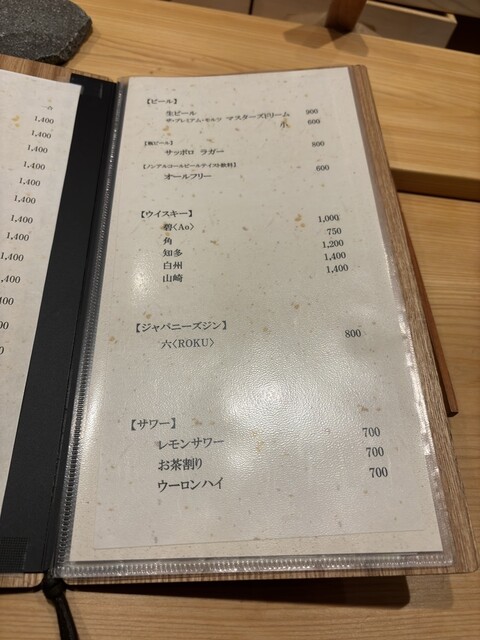 1,400
1,400
1,400
1,400
1,400
1,400
1,400
1,400
1,400
【ビール】
生ビール
ザ・プレミアム・モルツ マスターズドリーム 900
小 600
【瓶ビール】
サッポロ ラガー 800
【ノンアルコールビールテイスト飲料】
オールフリー 600
【ウイスキー】
碧〈Ao〉 1,000
角 750
知多 1,200
白州 1,400
山崎 1,400
【ジャパニーズジン】
六〈ROKU〉 800
【サワー】
レモンサワー 700
お茶割り 700
ウーロンハイ 700